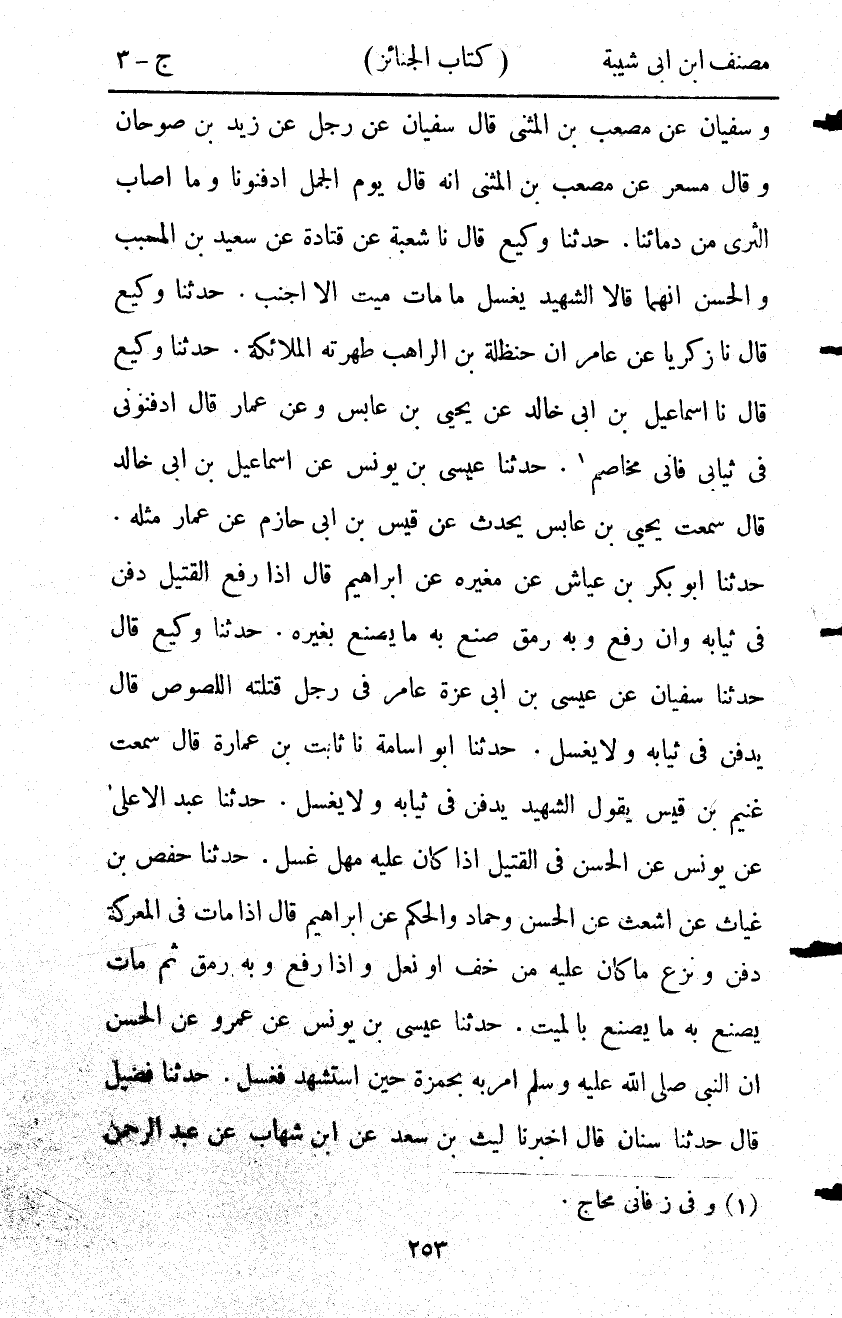 مصنف ابن ابى شيبة (كتاب الجنائز) ج - ٣
و سفيان عن مصعب بن المثنى قال سفيان عن رجل عن زيد بن صوحان
و قال مسعر عن مصعب بن المثنى انه قال يوم الجمل ادفنونا و ما اصاب
الثرى من دمائنا . حدثنا وكيع قال نا شعبة عن قتادة عن سعيد بن المحبب
و الحسن انهما قالا الشهيد يغسل ما مات ميت الا اجنب . حدثنا وكيع
قال نا زكريا عن عامر ان حنظلة بن الراهب طهرته الملائكة . حدثنا وكيع
قال نا اسماعيل بن ابى خالد عن يحيى بن عابس و عن عمار قال ادفنونى
فى ثيابى فانى مخاصم ١ . حدثنا عيسى بن يونس عن اسماعيل بن ابى خالد
قال سمعت يحيى بن عابس يحدث عن قيس بن ابى حازم عن عمار مثله .
حدثنا ابو بكر بن عياش عن مغيره عن ابراهيم قال اذا رفع القتيل دفن
فى ثيابه وان رفع و به رمق صنع به ما يصنع بغيره . حدثنا وكيع قال
حدثنا سفيان عن عيسى بن ابى عزة عامر فى رجل قتلته اللصوص قال
يدفن فى ثيابه و لا يغسل . حدثنا ابو اسامة نا ثابت بن عمارة قال سمعت
غنيم بن قيس يقول الشهيد يدفن فى ثيابه و لا يغسل . حدثنا عبد الاعلى
عن يونس عن الحسن فى القتيل اذا كان عليه مهل غسل . حدثنا حفص بن
غياث عن اشعث عن الحسن وحماد والحكم عن ابراهيم قال اذا مات فى المعركة
دفن و نزع ما كان عليه من خف او نعل و اذا رفع و به رمق ثم مات
يصنع به ما يصنع بالميت . حدثنا عيسى بن يونس عن عمرو عن الحسن
ان النبى صلى الله عليه و سلم امر به بحمزة حين استشهد فغسل . حدثنا فضيل
قال حدثنا سنان قال اخبرنا ليث بن سعد عن ابن شهاب عن عبد الرحمن
(١) و فى ز فانى محاج .
٢٥٣